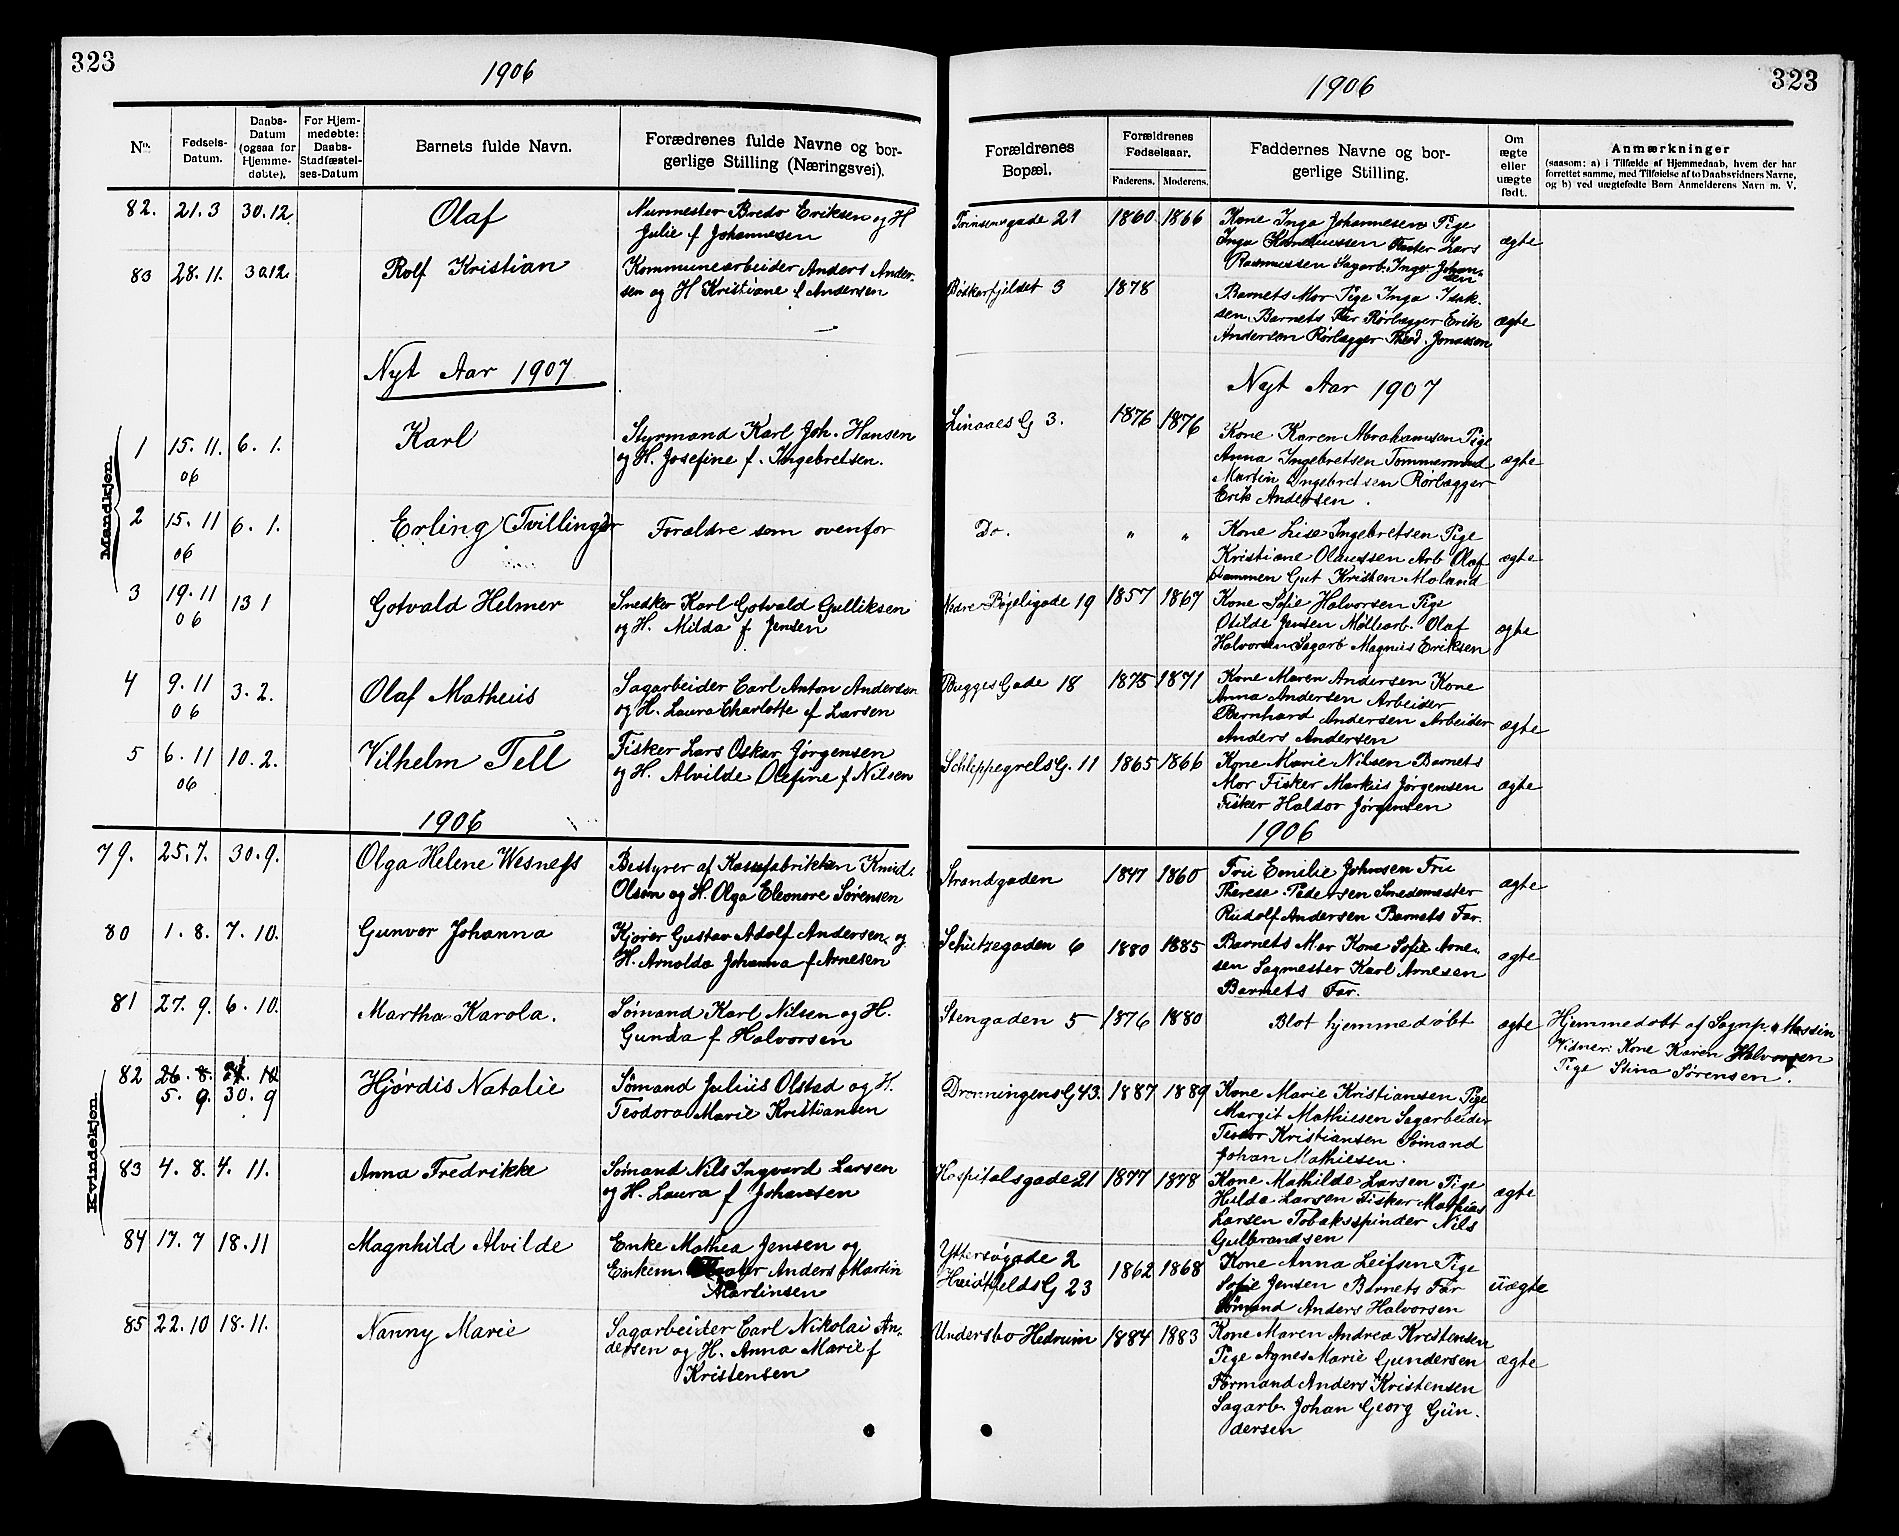 323
1906
No.
Fødsels-Datum.
Daabs-Datum (ogsaa for Hjemme-døbte).
For Hjem-medøbte: Daabs-Stadfæstel-ses-Datum
Barnets fulde Navn.
Forædrenes fulde Navne og bor-
gerlige Stilling (Næringsvei).
82. 21.3 30.12 Olaf
Murmester Bredo Eriksen og H
Julie f Johannesen
83 28.11. 30.12. Rolf Kristian
Kommunearbeider Anders Ander-
sen og H Kristiane f Andersen
Nyt Aar 1907
Mandkjøn
1 15.11. 06 6.1. Karl
Styrmand Karl Joh. Hansen
og H. Josefine f. Ingebretsen.
2 15.11 06 6.1. Erling (Tvillinger
Forældre som ovenfor
3 19.11 06 13 1 Gotvald Helmer
Snedker Karl Gotvald Gulliksen
og H. Milda f Jensen
4 9.11 06 3.2. Olaf Matheus
Sagarbeider Carl Anton Andersen
og H. Laura Charlotte f Larsen
5 6.11 06 10.2. Vilhelm Tell
Fisker Lars Oskar Jørgensen
og H. Alvilde Olefine f Nilsen
1906
Kvindekjøn
79. 25.7. 30.9. Olga Helene Wesness
Bestyrer af Kassefabrikken Knud
Olsen og H. Olga Eleonore Sørensen
80 1.8. 7.10. Gunvor Johanna
Kjører Gustav Adolf Andersen og
H. Arnolda Johanna f Arnesen
81 27.9. 6.10. Martha Karola.
Sømand Karl Nilsen og H.
Gunda f Halvorsen
82 26.8. 5.9. 30.9 Hjørdis Natalie
Sømand Julius Olstad og H.
Teodora Marie Kristiansen
83 4.8. 4.11. Anna Fredrikke
Sømand Nils Ingvard Larsen
og H. Laura f Johansen
84 17.7 18.11 Magnhild Alvilde
Enke Mathea Jensen og
Enkem. Anders Martin
Martinsen
85 22.10 18.11. Nanny Marie
Sagarbeider Carl Nikolai An-
dersen og H. Anna Marie f
Kristensen
323
1906
Forældrenes Bopæl.
Forældrenes Fødselsaar.
Faderens. Moderens.
Faddernes Navne og bor-
gerlige Stilling.
Om ægte eller uægte født.
Anmærkninger
(saasom: a) i Tilfælde af Hjemmedaab, hvem der har
forrettet samme, med Tilføielse af to Daabsvidners Navne,
og b) ved uægtefødte Børn Anmelderens Navn m. V.
Prinsensgade 21 1860 1866
Kone Inga Johannesen Pige
Inga Lars
Rasmussen Sagarb. Ingv Johan-
sen
ægte
Bøskerfjeldet 3 1878
Barnets Mor Pige Inga Isak-
sen Barnets Far Rørlægger Erik
Andersen Rørlægger Thed. Jonassen
ægte
Nyt Aar 1907
Linaaes G 3. 1876 1876
Kone Karen Abrahamsen Pige
Anna Ingebretsen Tømmermand
Martin Ingebretsen Rørlægger
Erik Andersen.
ægte
Do. " "
Kone Lise Ingebretsen Pige
Kristiane Olaussen Arb Olaf
Dammen Gut Kristen Moland
ægte
Nedre Bøgeligade 19 1857 1867
Kone Sofie Halvorsen Pige
Otilde Jensen Møllearb. Olaf
Halvorsen Sagarb Magnus Eriksen
ægte
Bugges Gade 18 1875 1871
Kone Maren Andersen Kone
Anna Andersen Arbeider
Bernhard Andersen Arbeider
Anders Andersen
ægte
Schlippegrels G. 11 1865 1866
Kone Marie Nilsen Barnets
Mor Fisker Markus Jørgensen
Fisker Haldor Jørgensen
ægte
1906
Strandgaden 1847 1860
Fru Emilie Johnsen Fru
Therese Pedersen Smedemester
Rudolf Andersen Barnets Far.
ægte
Schützegaden 6 1880 1885
Barnets Mor Kone Sofie Arne-
sen Sagmester Karl Arnesen
Barnets Far.
ægte
Stengaden 5 1876 1880
Blot hjemmedøbt
ægte
Hjemmedøbt af Sognp. Massin
Vidner: Kone Karen Halvorsen
Pige Stina Sørensen.
Dronningens G 43. 1887 1889
Kone Marie Kristiansen Pige
Margit Mathiesen Sagarbeider
Teodor Kristiansen Sømand
Johan Mathiesen.
Hospitalsgade 21 1877 1878
Kone Mathilde Larsen Pige
Hulda Larsen Fisker Mathias
Larsen Tobaksspinder Nils
Gulbrandsen
ægte
Yttersøgade 2
Hvidtfeldts G 23
1862 1868
Kone Anna Leifsen Pige
Sofie Jensen Barnets Far
Sømand Anders Halvorsen
uægte
Undersbo Hedrum 1884 1883
Kone Maren Andrea Kristensen
Pige Agnes Marie Gundersen
Formand Anders Kristensen
Sagarb. Johan Georg Gun-
dersen
ægte